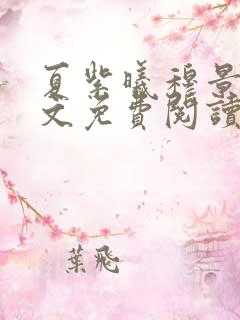 夏紫曦穆景
文免費閱讀
葉飛